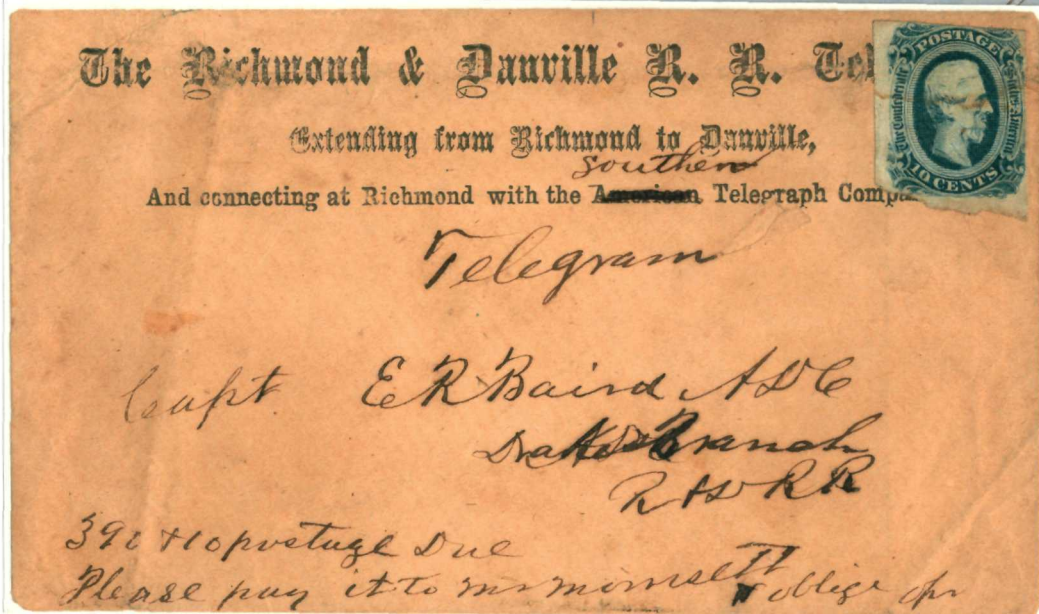 The Richmond & Danville R. R. Tel
Extending from Richmond to Danville,
Southern
And connecting at Richmond with the American Telegraph Compa
POSTAGE
The Confederate States of America
10 CENTS
Telegram
Capt E R Baird A D C
Branch
R & D R R
390 & 10 postage Due
Please pay it to Mr & oblige